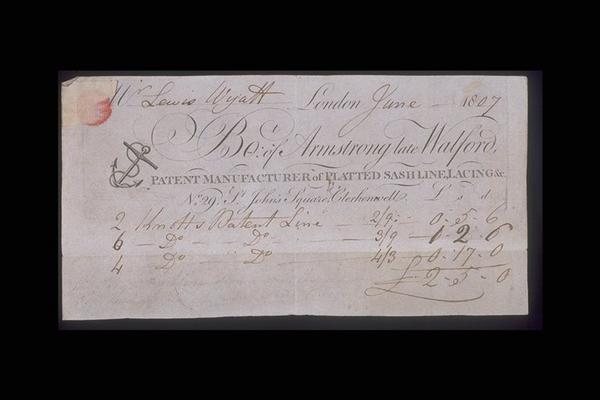 Mr Lewis Wyatt London June 1807
Bot. of Armstrong late Watford,
PATENT MANUFACTURER of PLATTED SASH LINE, LACING &c.
No. 29, St. John's Square, Clerkenwell. L s d
2 Knotts Patent Line 2/9 0-5-6
6 - Do - Do - 3/9 1-2-6
4 Do Do 4/3 0-17-0
£ 2-5-0